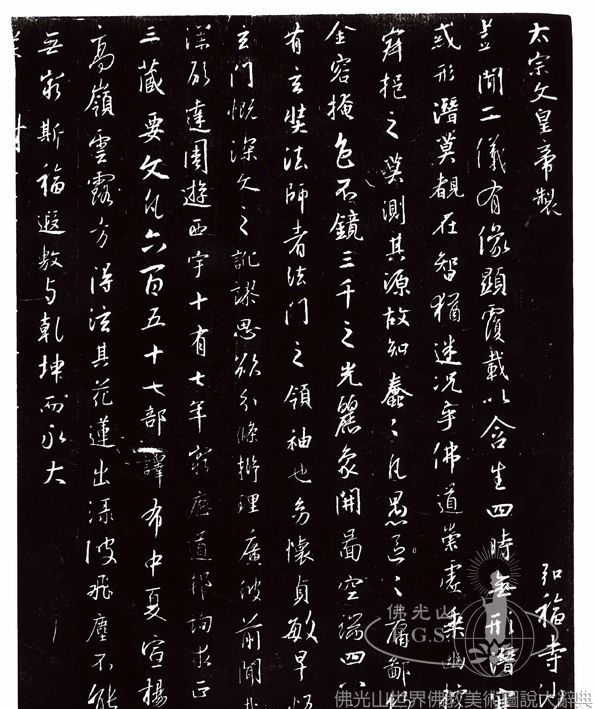 太宗文皇帝製 弘福寺沙
蓋聞二儀有像顯覆載以含生四時無形潛寒
或形潛莫覩在智猶迷況乎佛道崇虛乘幽控
寂挹之莫測其源故知蠢〻凡愚區〻庸鄙投
金容掩色不鏡三千之光麗象開圖空端四八
有玄奘法師者法門之領袖也幼懷貞敏早悟
玄門慨深文之訛謬思欲分條析理廣彼前聞
深願達周遊西宇十有七年窮歷道邦詢求正
三藏要文凡六百五十七部譯布中夏宣揚
高嶺雲露方得泫其花蓮出淥波飛塵不能
無窮斯福遐敷与乾坤而永大
佛光山
F.G.S
佛光山世界佛教美術圖說大辭典